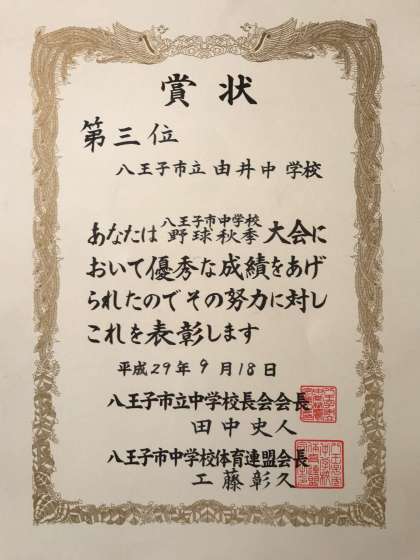 賞状
第三位
八王子市立 由井中 学校
八王子市中学校
あなたは 野球秋季 大会に
おいて優秀な成績をあげ
られたのでその努力に対し
これを表彰します
平成29年9月18日
八王子市立中学校長会会長
田中史人
八王子市中学校体育連盟会長
工藤彰久